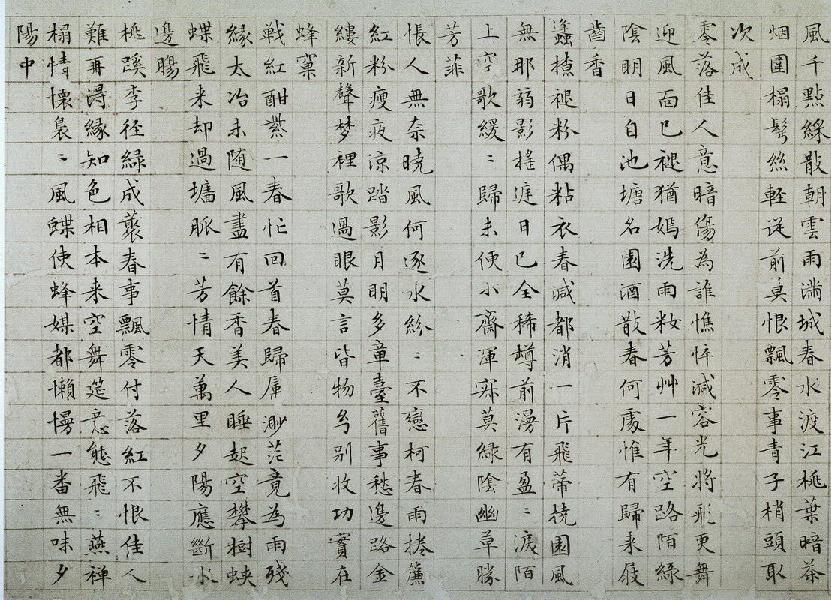 風千點綵散朝雲雨滿城春水渡江桃葉暗茶
烟圍榻鬢絲輕從前莫恨飄零事青子梢頭取
次成
零落佳人意暗傷為誰憔悴減容光將飛更舞
迎風面已褪猶嫣洗雨妝芳艸一年空路陌綠
陰明日自池塘名園酒散春何處惟有歸來屐
齒香
蠭撩褪粉偶粘衣春減都消一片飛蒂撓園風
無那弱影搖庭日已全稀樽前漫有盈〻淚陌
上空歌緩〻歸未便小齋渾寂莫綠陰幽草勝
芳菲
悵人無奈曉風何逐水紛〻不戀柯春雨捲簾
紅粉瘦夜涼踏影月明多章臺舊事愁邊路金
縷新聲梦裡歌過眼莫言皆物幻別收功實在
蜂窠
戰紅酣紫一春忙回首春歸屬渺茫竟為雨殘
緣太冶未隨風盡有餘香美人睡起空攀樹蛺
蝶飛来却過墻脈〻芳情天萬里夕陽應斷水
邊腸
桃蹊李徑綠成叢春事飄零付落紅不恨佳人
難再得緣知色相本来空舞筵意態飛〻燕禪
榻情懷裊〻風蝶使蜂媒都懶慢一番無味夕
陽中